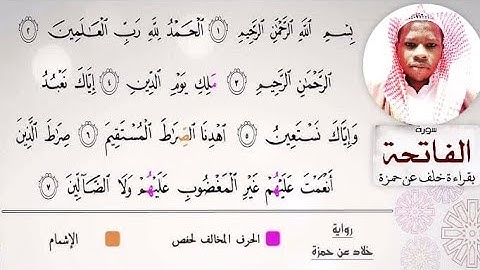 بِسْمِ اللَّهِ الرَّحْمَٰنِ الرَّحِيمِ ١ الْحَمْدُ لِلَّهِ رَبِّ الْعَالَمِينَ ٢
الرَّحْمَٰنِ الرَّحِيمِ ٣ مَلِكِ يَوْمِ الدِّينِ ٤ إِيَّاكَ نَعْبُدُ
وَإِيَّاكَ نَسْتَعِينُ ٥ اهْدِنَا الصِّرَاطَ الْمُسْتَقِيمَ ٦ صِرَاطَ الَّذِينَ
أَنْعَمْتَ عَلَيْهُمْ غَيْرِ الْمَغْضُوبِ عَلَيْهُمْ وَلَا الضَّالِّينَ ٧
سورة
الفاتحة
بقراءة خلف عن حمزة
رواية
خلاد عن حمزة
الحرف المخالف لحفص
الإشمام